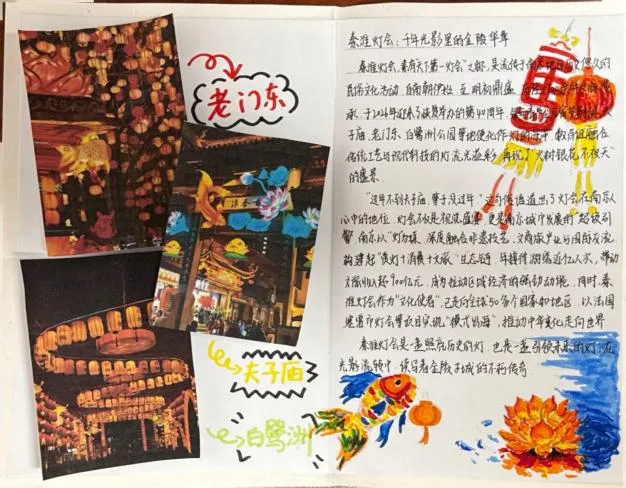 老门东
夫子庙
白鹭洲
秦淮灯会：千年光影里的金陵华章
秦淮灯会，素有"天下第一灯会"之称，是流传于南京地区历史悠久的
民俗文化活动，自南朝伊始，至明初鼎盛，
承，于2026年迎来了恢复举办的第40周年。
子庙、老门东、白鹭洲公园等地便化作灯的海洋，数百组融合
传统工艺与现代科技的灯流光溢彩，再现了"火树银花不夜天"
的盛景。
"过年不到夫子庙，等于没过年。"这句俗语道出了灯会在南京人
心中的地位。灯会不仅是视觉盛宴，更是南京城市发展的"超级引
擎"。南京以"灯"为媒，深度融合非遗技艺、文商旅产业与国际交流，
构建起"赏灯+消费+文旅"生态链，年接待游客近亿人次，带动
文旅收入超900亿元，成为推动区域经济的强劲动能。同时，秦
淮灯会作为"文化使者"，已走向全球50多个国家和地区，以法国
灯会等项目实现"模式出海"，推动中华文化走向世界。
秦淮灯会是一盏照亮历史的灯，也是一盏引领未来的灯，在
光影流转中，续写着金陵古城的不朽传奇